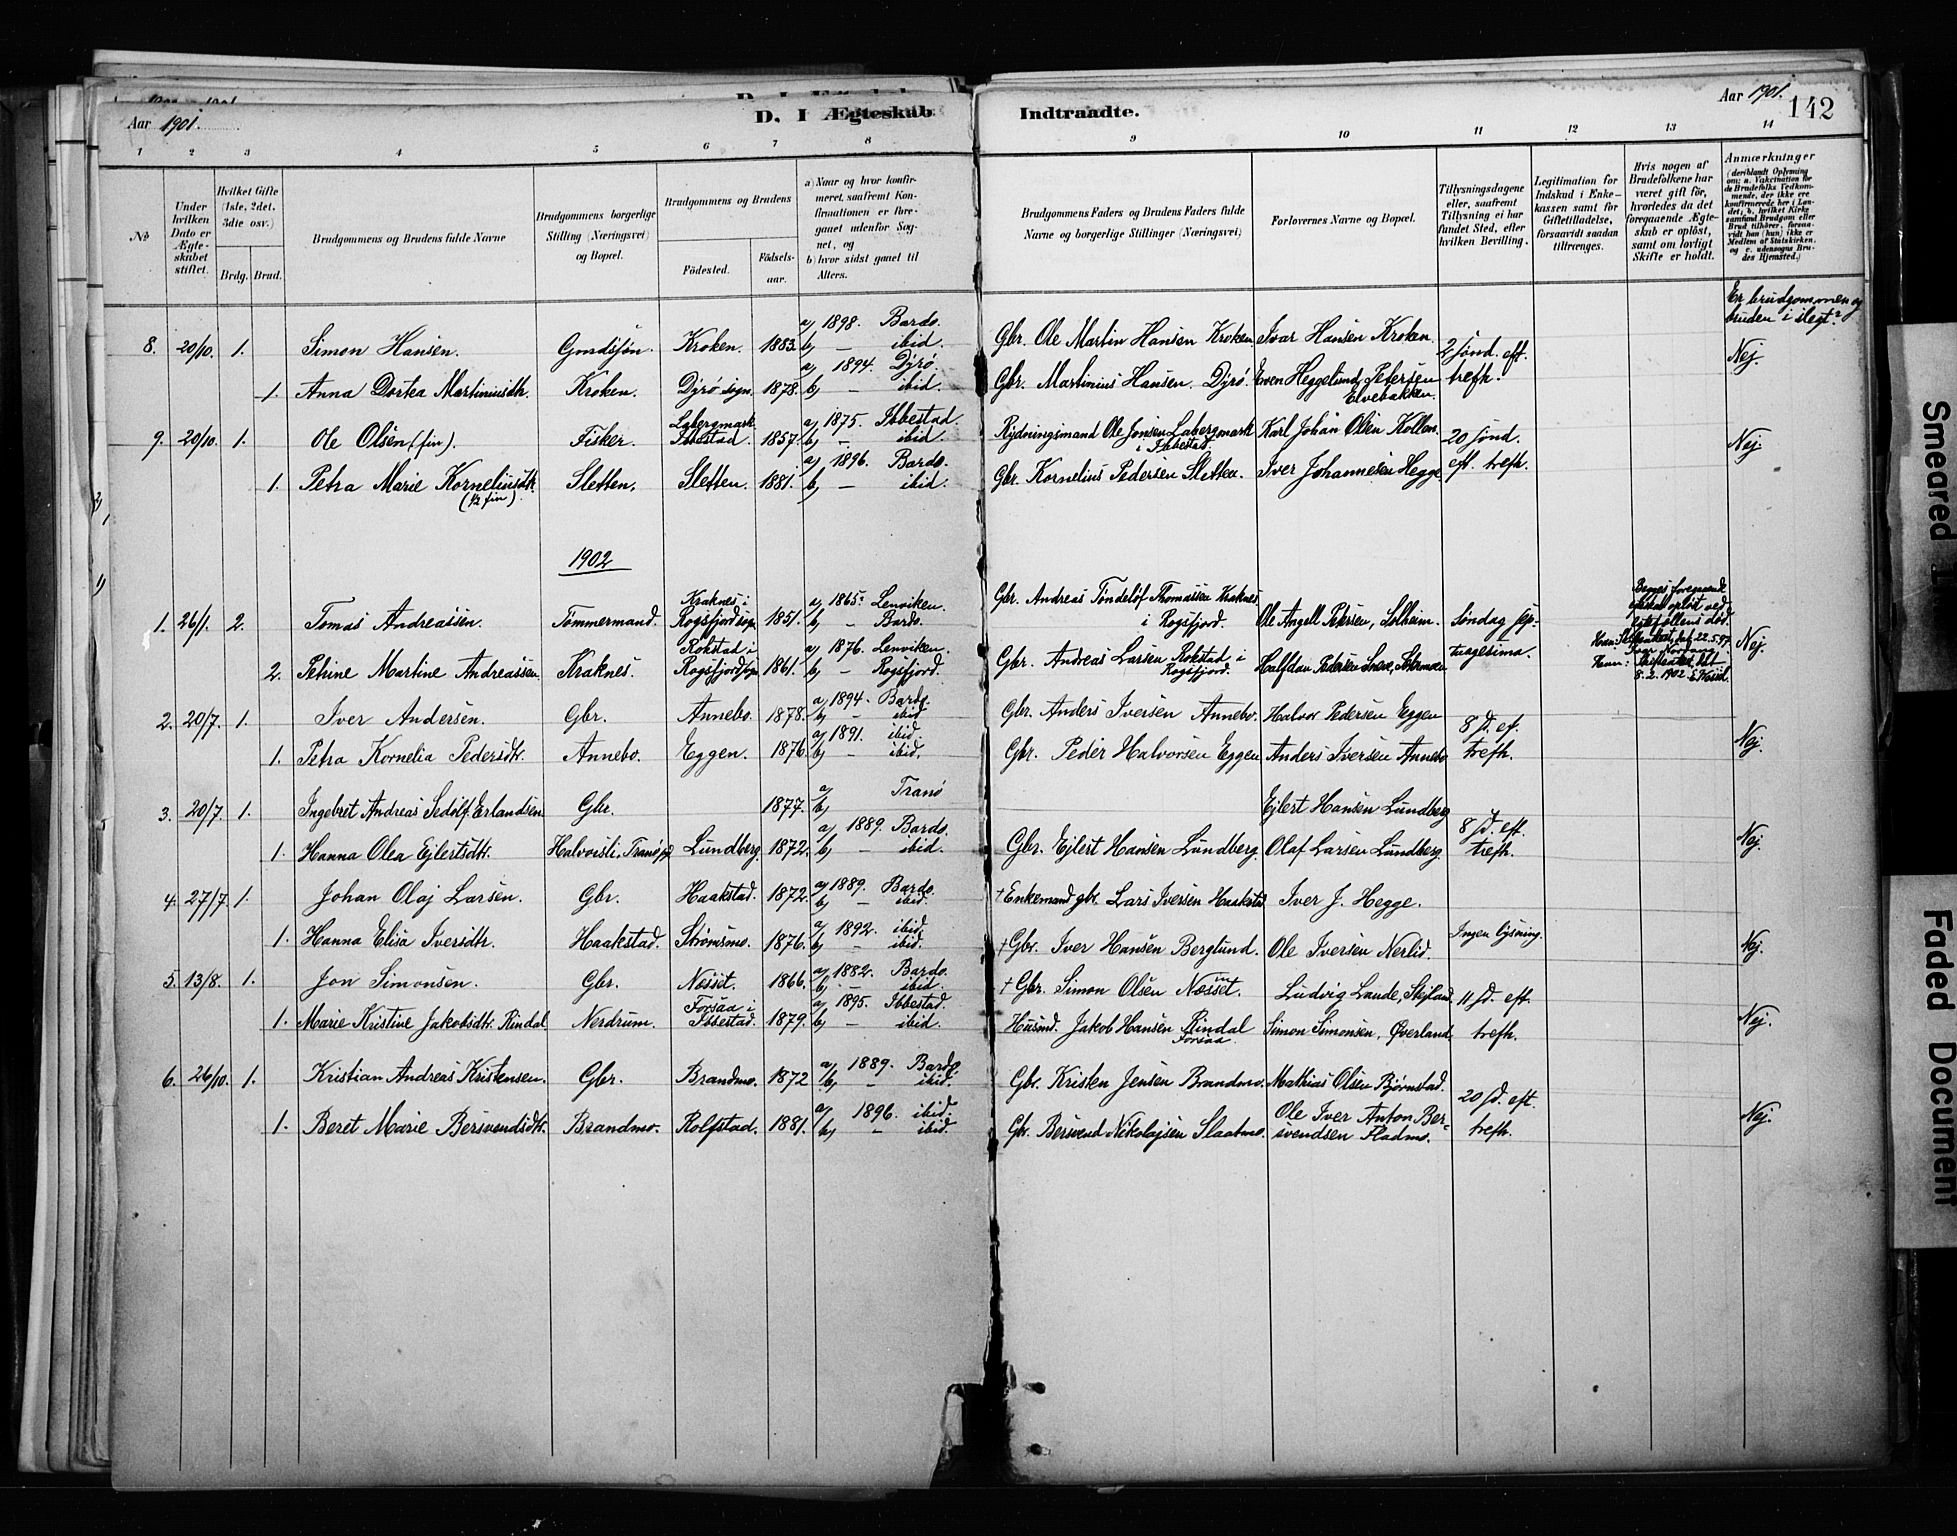 Aar 1901. D. I Ægteskab Indtraadte. Aar 1901. 142
1 2 3 4 5 6 7 8 9 10 11 12 13 14
№
Under hvilken Dato er Ægteskabet stiftet.
Hvilket Gifte (1ste, 2det, 3die osv.)
Brdg. Brud.
Brudgommens og Brudens fulde Navne
Brudgommens borgerlige Stilling (Næringsvei) og Bopæl.
Brudgommens og Brudens
Födested. Födselsaar.
a) Naar og hvor konfirmeret, saafremt Konfirmationen er foregaaet udenfor Sognet, og
b) hvor sidst gaaet til Alters.
Brudgommens Faders og Brudens Faders fulde Navne og borgerlige Stillinger (Næringsvei)
Forlovernes Navne og Bopæl.
Tillysningsdagene eller, saafremt Tillysning ei har fundet Sted, efter hvilken Bevilling.
Legitimation for Indskud i Enkekassen samt for Giftetilladelse, forsaavidt saadan tiltrænges.
Hvis nogen af Brudefolkene har været gift før, hvorledes da det foregaaende Ægteskab er opløst, samt om lovligt Skifte er holdt.
Anmærkninger (deriblandt Oplysning om: a. Vakcination for de Brudefolks Vedkommende, der ikke ere konfirmerede her i Landet; b. hvilket Kirkesamfund Brudgom eller Brud tilhører, forsaavidt han (hun) ikke er Medlem af Statskirken, og c. udensogns Brudes Hjemsted.)
Er brudgommen og bruden i slegt?
8. 20/10. 1. Simon Hansen. Kroken. 1883. a) 1898. Bardo. b) — ibid. Gbr. Ole Martin Hansen Kroken Ivar Hansen Kroken. 2 sønd. eft. Nej.
1. Anna Dortea Martinusdtr. Kroken. Dyrø sogn 1878. a) 1894. Dyrö. b) — ibid. Gbr. Martinius Hansen Dyrö. Even Heggelund Petersen Elvebakken. trefh.
9. 20/10. 1. Ole Olsen (fin). Fisker. Labergmark Ibbestad. 1857. a) 1875. Ibbestad. b) — ibid Rydningsmand Ole Jonsen Labergmark i Ibbestad. Karl Johan Olsen Kollen. 20 sønd. Nej
1. Petra Marie Korneliusdtr. (½ fin) Sletten. Sletten. 1881. a) 1896. Bardo. b) — ibid. Gbr. Kornelius Pedersen Sletten. Iver Johannesen Hegge eft. trefh.
1902
1. 26/1. 2. Tomas Andreassen. Tømmermand. Kraknes i Rogsfjord sogn 1851. a) 1865. Lenviken. b) — Bardo. Gbr. Andreas Töndelöf Thomassen Kraknes i Rogsfjord. Ole Angell Petersen, Solheim. Søndag sep- Nej.
2. Petrine Martine Andreassen. Kraknes. Rokstad i Rogsfjord sogn 1861. a) 1876. Lenviken. b) — Rogsfjord. Gbr. Andreas Larsen Rokstad i Rogsfjord. Halfdan Pedersen tuagesima. 8.2.1902
2. 20/7. 1. Iver Andersen. Gbr. Annebo. 1878. a) 1894. Bardo. b) — ibid Gbr. Anders Iversen Annebo. Halvor Pedersen Eggen 8 s. ef. Nej.
1. Petra Kornelia Pedersdtr. Annebo. Eggen. 1876. a) 1891. ibid. b) — ibid. Gbr. Peder Halvorsen Eggen Anders Iversen Annebo trefh.
3. 20/7. 1. Ingebret Andreas Sedolf Erlandsen Gbr. 1877. a) Tranö b) Ejlert Hansen Lundberg 8 s. eft. Nej.
1. Hanna Olea Ejlertsdtr. Halvorsli, Lundberg. 1872. a) 1889. Bardo. b) — ibid. Gbr. Ejlert Hansen Lundberg. Olaf Larsen Lundberg. trefh.
4. 27/7. 1. Johan Olaj Larsen. Gbr. Haakstad. 1872. a) 1889. Bardo. b) — ibid. + Enkemand gbr. Lars Iversen Haakstad Iver J. Hegge. Ingen lysning. Nej.
1. Hanna Elisa Iversdtr. Haakstad. Strömsmo. 1876. a) 1892. ibid. b) — ibid. + Gbr. Iver Hansen Berglund. Ole Iversen Nerlid.
5. 13/8. 1. Jon Simonsen. Gbr. Næsset. 1866. a) 1882. Bardo. b) — ibid. + Gbr. Simon Olsen Næsset. Ludvig Lande, 11 s. eft. Nej.
1. Marie Kristine Jakobsdtr. Rindal Nerdrum. Forsaa i Ibbestad. 1879. a) 1895. Ibbestad. b) — ibid. Husmd. Jakob Hansen Rindal Forsaa Simon Simonsen, Øverland. trefh.
6. 26/10. 1. Kristian Andreas Kristensen. Gbr. Brandmo. 1872 a) 1889. Bardo. b) — ibid. Gbr. Kristen Jensen Brandmo. Mathias Olsen Bjørnstad. 20 s. eft. Nej.
1. Beret Marie Bersvendsdtr. Brandmo. Rolfstad. 1881. a) 1896. ibid. b) — ibid. Gbr. Bersvend Nikolajsen Slaatmo. Ole Iver Anton Bersvendsen Fladmo. trefh.
Smeared
Faded Document